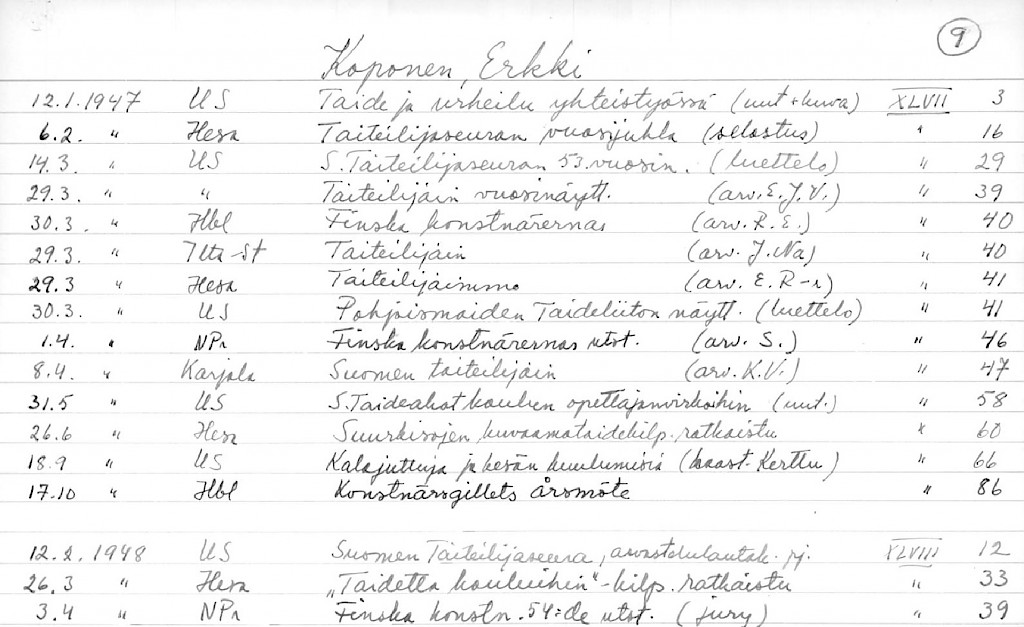 9
Koponen, Erkki
12.1.1947 US Taide ja urheilu yhteistyössä (uut + kuva) XLVII 3
6.2. " Hesa Taiteilijaseuran vuosijuhla (selostus) " 16
14.3. " US S. Taiteilijaseuran 53. vuosin. (luettelo) " 29
29.3. " " Taiteilijain vuosinäytt. (arv. E.J.V.) " 39
30.3. " Hbl Finska konstnärernas (arv. R.E.) " 40
29.3. " Ilta-St Taiteilijain (arv. J.Na) " 40
29.3 " Hesa Taiteilijaimme (arv. E.R-r) " 41
30.3. " US Pohjoismaiden Taideliiton näytt. (luettelo) " 41
1.4. " NPr Finska konstnärernas utst. (arv. S.) " 46
8.4. " Karjala Suomen taiteilijain (arv. K.V.) " 47
31.5 " US S. Taideakat koulun opettajanvirkoihin (uut.) " 58
26.6 " Hesa Suurkisojen kuvaamataidekilp. ratkaistu " 60
18.9 " US Kalajuttuja ja kesän kuulumisia (haast. Kerttu) " 66
17.10 " Hbl Konstnärsgillets årsmöte " 86
12.2.1948 US Suomen Taiteilijaseura, arvostelulautak. pj. XLVIII 12
26.3 " Hesa "Taidetta kouluihin"-kilp. ratkaistu " 33
3.4 " NPr Finska konstn. 54:de utst. (jury) " 39